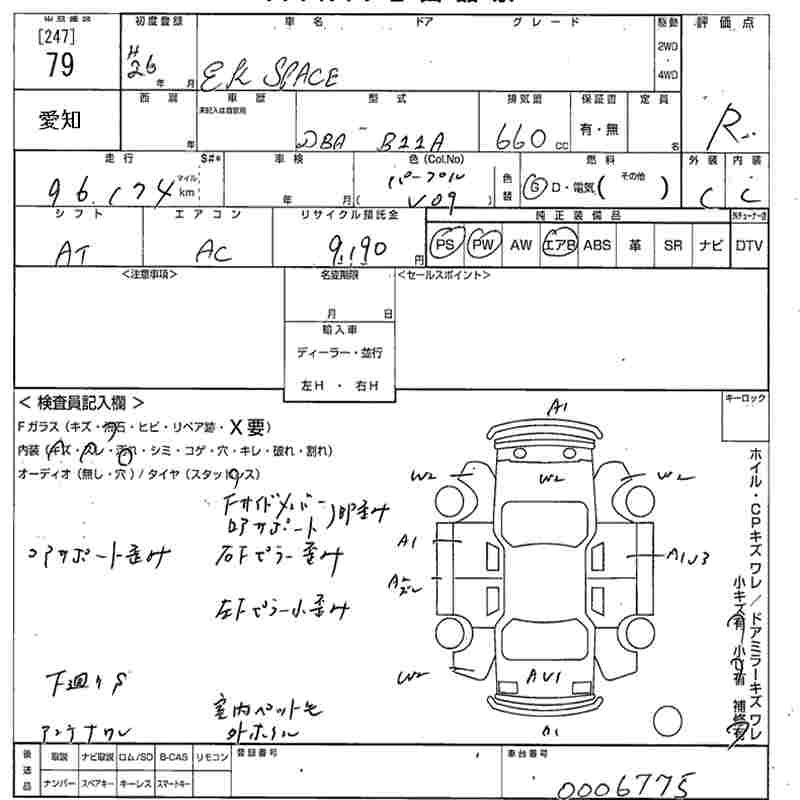 [247]
79
愛知
初度登録
H
26
年 月
車名 ドア グレード
EK SPACE
駆動
2WD
・
4WD
評価点
R
西暦
年
車歴
未記入は自家用
型式
DBA - B11A
排気量
660 cc
保証書
有・無
定員
名
走行 $#*
96.174 マイル km
車検
年 月
色 (Col.No)
パープル
( V09 )
色替
燃料
G D・電気( その他 )
外装
C
内装
C
シフト
AT
エアコン
AC
リサイクル預託金
9,190 円
純正装備品
PS PW AW エアB ABS 革 SR ナビ
DTV
<注意事項>
名変期限
月 日
輸入車
ディーラー・並行
左H ・ 右H
<セールスポイント>
< 検査員記入欄 >
Fガラス (キズ・飛石・ヒビ・リペア跡・X要)
内装 (キズ・スレ・汚れ・シミ・コゲ・穴・キレ・破れ・割れ)
オーディオ (無し・穴) / タイヤ (スタッドレス)
Fサイドメンバー
コアサポート
コアサポート歪み
右Fピラー歪み
左Fピラー小歪み
下廻りS
アンテナワレ
室内ペット毛
外ホイル
A1
W2
W2
W2
A1
A1U3
Aズレ
W2
AU1
キーロック
ホイル・CPキズ ワレ / ドアミラーキズ ワレ
小キズ有 小凹有 補修有
後送品
取説 ナビ取説 ロム/SD B-CAS リモコン
ナンバー スペアキー キーレス スマートキー
登録番号
車台番号
0006775